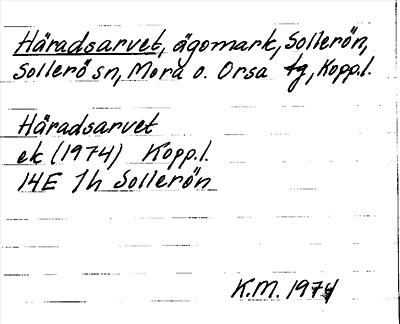 Häradsarvet, ägomark, Sollerön,
Sollerö sn, Mora o. Orsa tg, Kopp.l.
Häradsarvet
ek (1974) Kopp.l.
14E 7h Sollerön
K.M. 1974